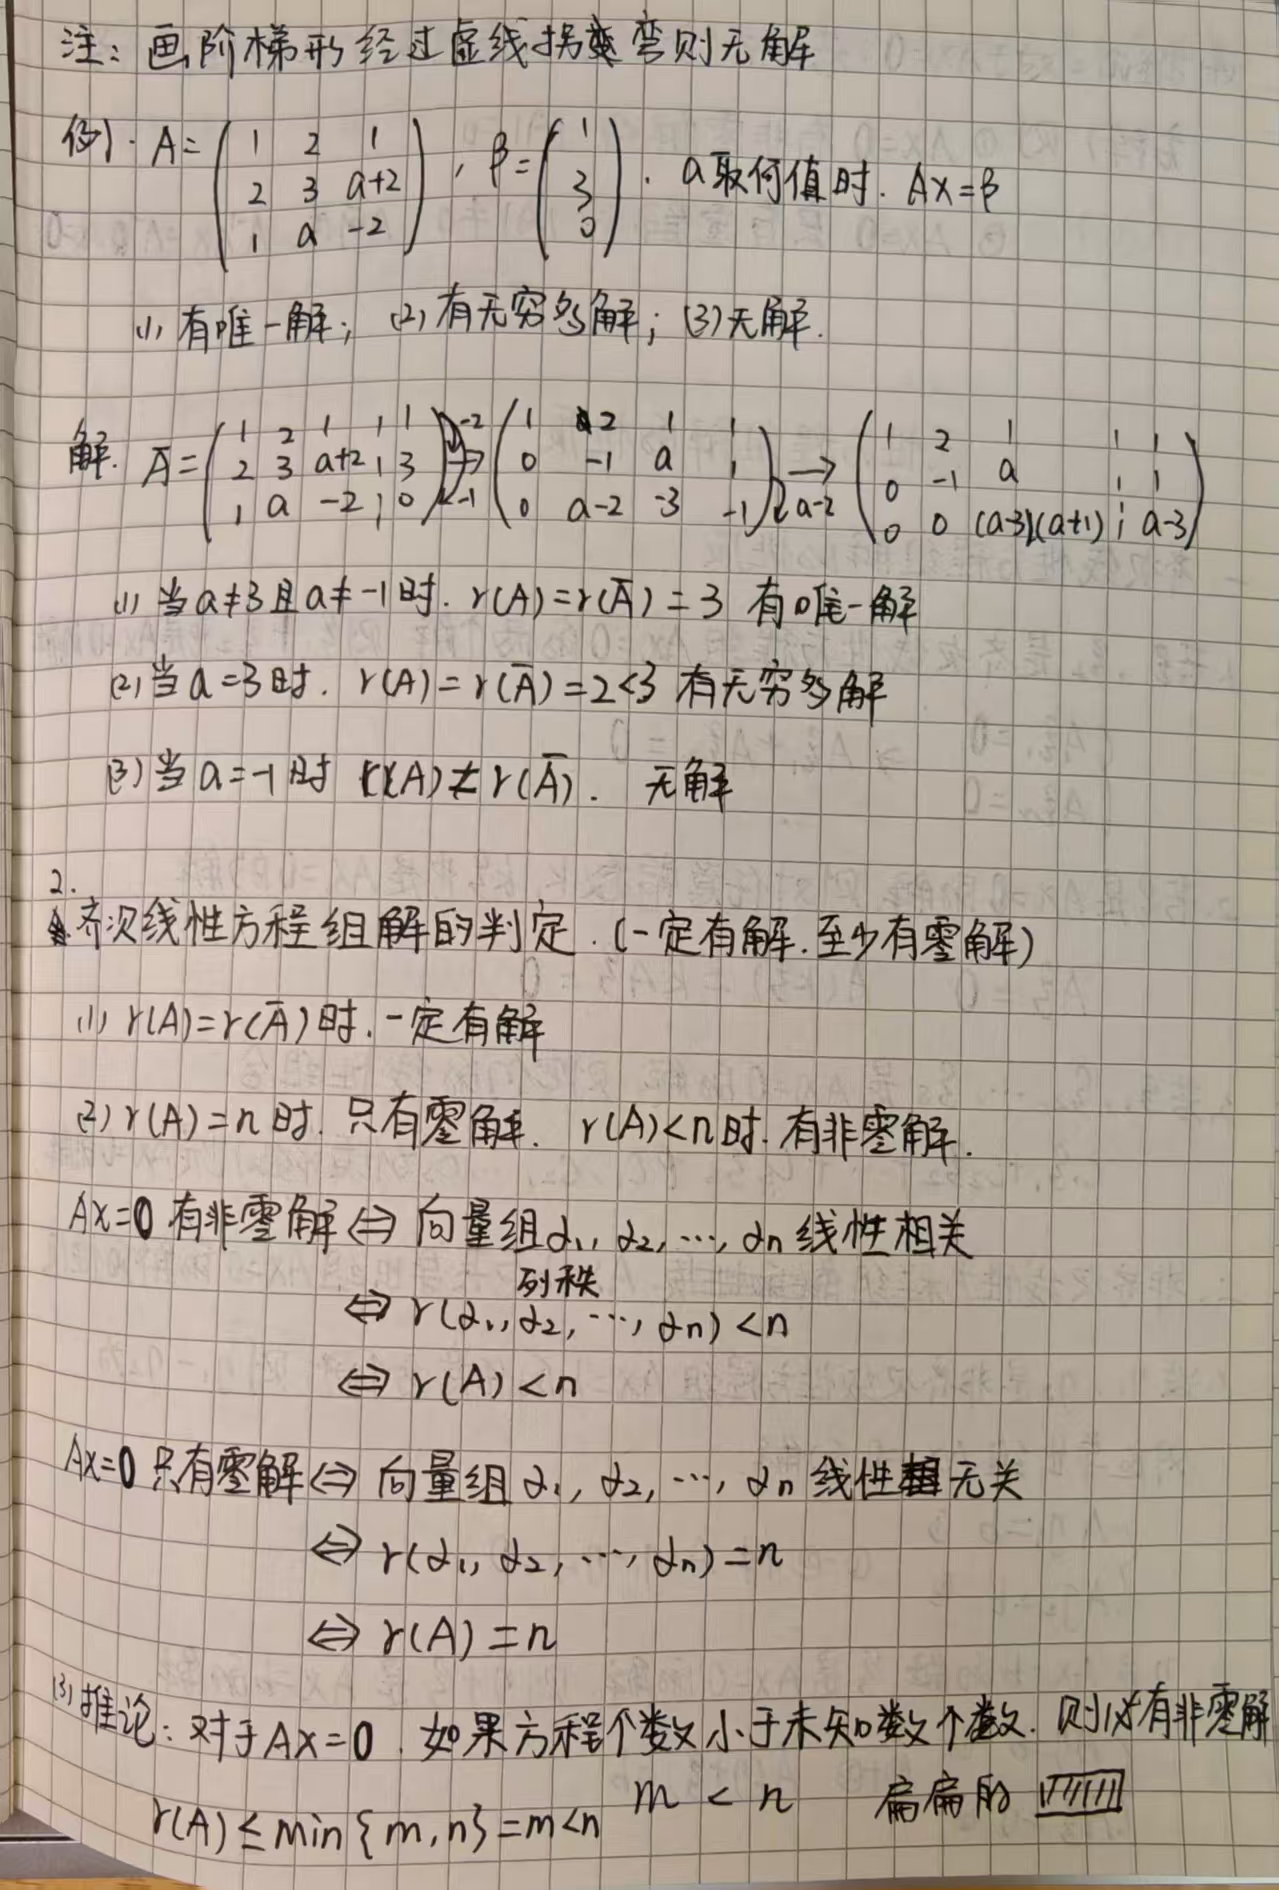 注：画阶梯形经过虚线拐弯则无解
例1. A=(1 2 1; 2 3 a+2; 1 a -2), β=(1; 3; 0). a取何值时. AX=β
(1) 有唯一解; (2) 有无穷多解; (3) 无解.
解. Ā=(1 2 1 ¦ 1; 2 3 a+2 ¦ 3; 1 a -2 ¦ 0) -2 -1 → (1 2 1 1; 0 -1 a 1; 0 a-2 -3 -1) a-2 → (1 2 1 ¦ 1; 0 -1 a ¦ 1; 0 0 (a-3)(a+1) ¦ a-3)
(1) 当a≠3且a≠-1时. r(A)=r(Ā)=3 有唯一解
(2) 当a=3时. r(A)=r(Ā)=2<3 有无穷多解
(3) 当a=-1时 r(A)≠r(Ā). 无解
2. 齐次线性方程组解的判定. (一定有解.至少有零解)
(1) r(A)=r(Ā)时.一定有解
(2) r(A)=n时. 只有零解. r(A)<n时. 有非零解.
AX=0 有非零解⇔ 向量组α₁, α₂, ···, αn 线性相关
列秩
⇔ r(α₁, α₂, ···, αn)<n
⇔ r(A)<n
AX=0 只有零解⇔ 向量组α₁, α₂, ···, αn 线性无关
⇔ r(α₁, α₂, ···, αn)=n
⇔ r(A)=n
(3) 推论: 对于AX=0. 如果方程个数小于未知数个数. 则必有非零解
m < n 扁扁的
r(A)≤min{m,n}=m<n